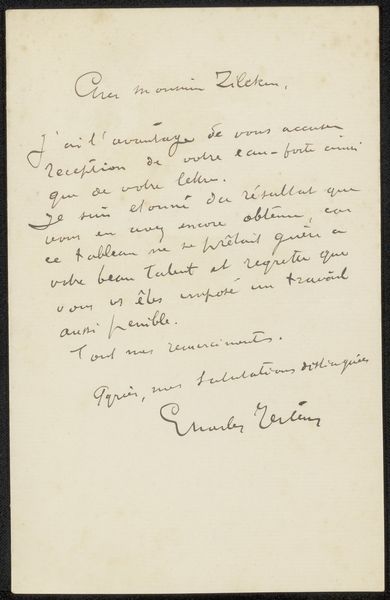 Cher monsieur Zilcken,
J'ai l'avantage de vous accuser
reception de votre eau-forte ainsi
que de votre lettre.
Je suis etonné du résultat que
vous en avez encore obtenu, car
ce tableau ne se prêtait guère a
votre beau talent et regrette que
vous vs êtes imposé un travail
aussi penible.
Tout mes remerciments.
Agréez, mes salutations distinguées
Charles